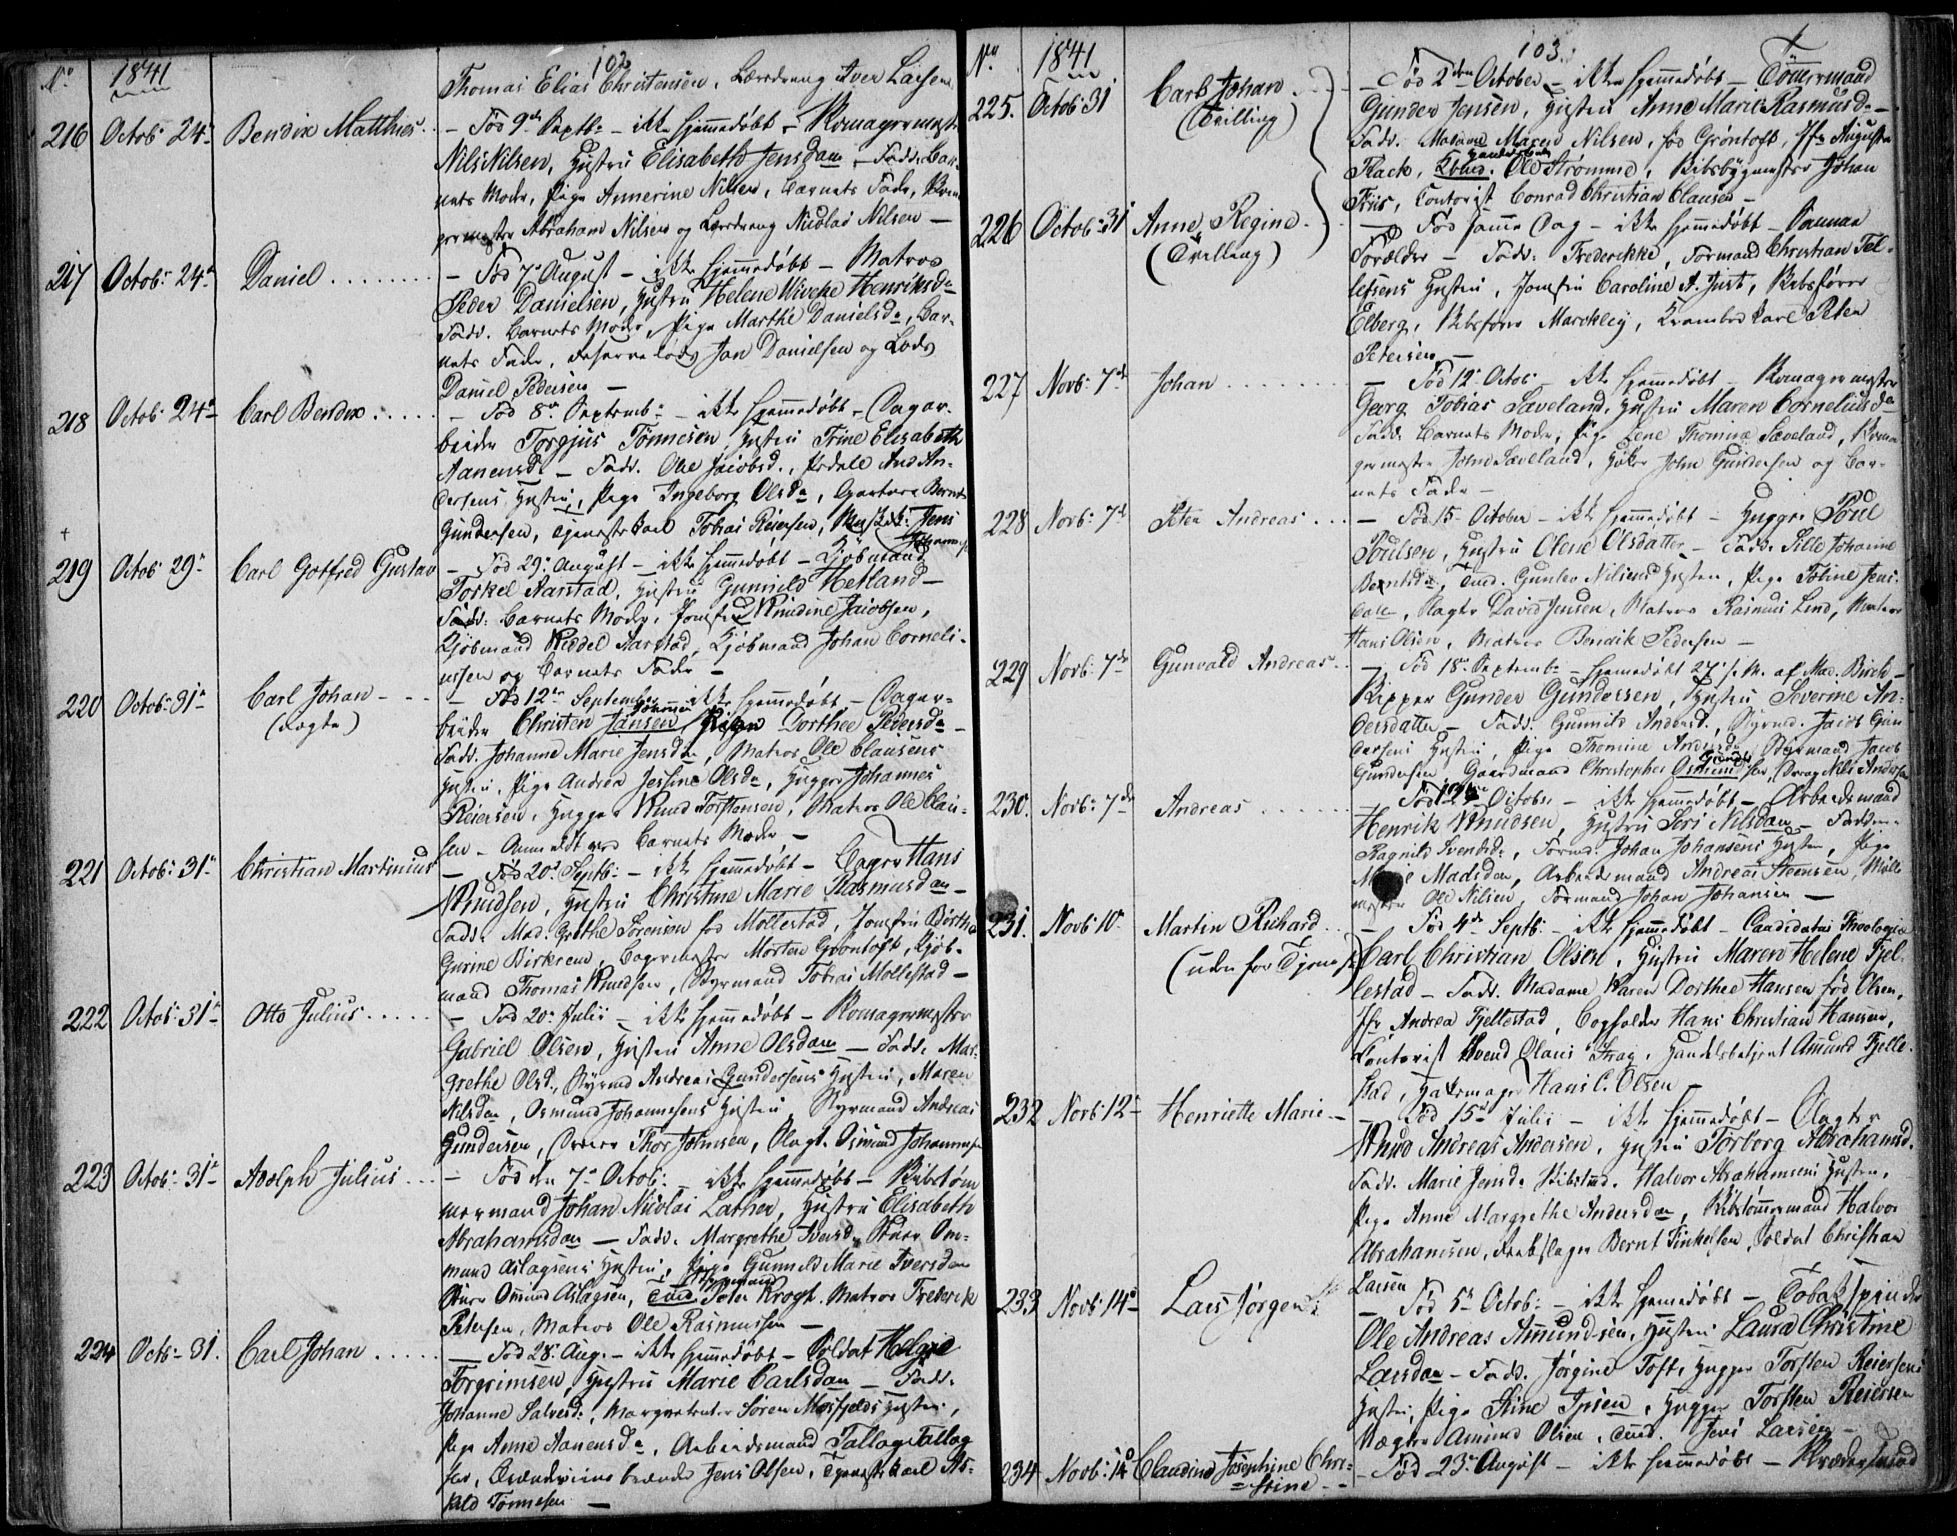 102
No 1841
Thomas Elias Christensen, Læredreng Iver Larsen
216 Octob: 24de Bendix Matthies
– Fød 9de Septbr – ikke hjemmedøbt – Skomagermester
Nils Nilsen, Hustru Elisabeth Jensdatr – Fadd: Bar-
nets Moder, Pige Annerine Nilsen, Barnets Fader, Skoma-
germester Abraham Nilsen og Læredreng Nicolai Nilsen –
217 Octob: 24de Daniel
– Fød 7de August – ikke hjemmedøbt – Matros
Peder Danielsen, Hustru Helene Wiveke Henriksdr
Fadd. Barnets Moder, Pige Marthe Danielsdr, Bar-
nets Fader, Reservelods Jan Danielsen og Lods
Daniel Pedersen –
218 Octob: 24de Carl Bendix
– Fød 8de Septemb: – ikke hjemmedøbt – Dagar-
beider Torgjus Tönnesen, Hustru Trine Elisabeth
Aanensd. – Fadd. Ole Jacobsd., And. An-
dersens Hustru, Pige Ingeborg Olsdr, Gartner Bernt
Gundersen, Tjenestekarl Tobias Reiersen, Jens
Johannes
219 Octob 29de Carl Gotfred Gustav
– Fød 29de August – ikke hjemmedøbt – Kjöbmand
Torkel Aarstad, Hustru Gunnild Hetland –
Fadd: Barnets Moder, Jomfru Knudine Jacobsen,
Kjöbmand Aarstad, Kjöbmand Johan Corneli-
ussen og Barnets Fader –
220 Octob: 31de Carl Johan
(uægte)
– Fød 12te September – ikke hjemmedøbt – Dagar-
beider Christen Jansen Pigen Dorthee Pedersdr –
Fadd. Johanne Marie Jensdr, Matros Ole Clausens
Hustru, Pige Andrea Jessine Olsdr, Hugger Johannes
Reiersen, Hugger Knud Torstensen, Matros Ole Clau-
sen – Anmeldt ved Barnets Moder –
221 Octob: 31de Christian Martinius
– Fød 20de Septb: – ikke hjemmedøbt – Bager Hans
Knudsen, Hustru Christine Marie Rasmusdatr –
Fadd. Mad. Grethe Sörensen fød Mollestad, Jomfru Börthe
Gurine Birkrem, Bagermester Morten Grøntoft, Kjöb-
mand Thomas Knudsen, Styrmand Tobias Mollestad –
222 Octob: 31te Otto Julius
– Fød 20de Julii – ikke hjemmedøbt – Skomagermester
Gabriel Olsen, Hustru Anne Olsdatr – Fadd. Mar-
grethe Olsd., Styrmd Andreas Gundersens Hustru, Maren
Nilsdr, Osmund Johannesens Hustru, Styrmand Andreas
Gundersen, Thor Johnsen, Osmund Johannesen
223 Octob: 31te Adolph Julius
– Fød den 7de Octob: – ikke hjemmedøbt – Skibstöm-
mermand Johan Nicolai Lather, Hustru Elisabeth
Abrahamsdatr – Fadd. Margrethe Iversdr, Om-
mund Aslagsens Hustru, Pige Gunneld Marie Iversdr
Ommund Aslagsen, Styrmand Peter Krogh, Matros Frederik
Petersen, Matros Ole Rasmussen –
224 Octb: 31. Carl Johan
– Fød 28de Aug. – ikke hjemmedøbt – Soldat Helgie
Torgrimsen, Hustru Marie Carlsdatr – Fadd.
Johanne Salvesdr, Sören Mosfjelds Hustru,
Pige Anne Aanensdr, Arbeidsmand Tallag Tallag-
sen, Jens Olsen, Tjenestekarl As-
kild Tönnesen –
103
No 1841
225. Octob: 31 Carl Johan
(Tvilling)
– Fød 2den October – ikke hjemmedøbt – Tömmermand
Gunder Jensen, Hustru Anne Marie Rasmusd. –
Fadd. Madame Maren Nilsen, fød Gröntoft, Jfr Augusta
Flack, Ole Strömme, Skibsbygmester Johan
Friis, Contorist Conrad Christian Clausen –
226 Octob: 31te Anne Regine
(Tvilling)
– Fød samme Dag – ikke hjemmedøbt – Samme
Forældre – Fadd: Frederikke, Formand Christian Tel-
lefsens Hustru, Jomfru Caroline A. Just, Skibsfører
Elberg, Skibsfører Marckley, Krambodkarl Peter
Petersen –
227 Novb: 7de Johan
– Fød 12te Octob: – ikke hjemmedøbt – Skomagermester
Georg Tobias Saveland, Hustru Maren Corneliusdr
Fadd. Barnets Moder, Pige Lene Thomine Saveland, Skoma-
germester John Saveland, Høker John Gundersen og Bar-
nets Fader –
228 Novb: 7de Peter Andreas
– Fød 15de October – ikke hjemmedøbt – Hugger Poul
Poulsen, Hustru Olene Olsdatter – Fadd. Sille Johanne
Berntsdr, Gunlev Nilsens Hustru, Pige Toline Jens-
datr, David Jensen, Matros Rasmus Lind, Matros
Hans Olsen, Matros Bendik Pedersen –
229 Novb: 7de Gunvald Andreas
– Fød 18de Septembr – hjemmedøbt 27de s. M. af Mad. Birch –
Kipper Gunder Gundersen, Hustru Severine An-
dersdatter – Fadd. Gunnild Andersd., Styrmd. Jacob Gun-
dersens Hustru, Pige Thomine Andersdr, Styrmand Jacob
Gundersen, Gaardmand Christopher Osmundsen, Dreng Nils Andersen
230. Novb: 7de Andreas
Fød October – ikke hjemmedøbt – Arbeidsmand
Henrik Knudsen, Hustru Seri Nilsdatr – Fadder
Ragnild Svendsdr, Formd. Johan Johansens Hustru, Pige
Madsdatr, Arbeidsmand Andreas Steensen, Mölle
mester Ole Nilsen, Formand Johan Johansen –
231. Novb: 10de Martin Richard
(uden for Tjeneste)
– Fød 4de Septb: – ikke hjemmedøbt – Candidatus Theologiæ
Carl Christian Olsen, Hustru Maren Helene Fjel-
lestad – Fadd. Madame Karen Dorthee Hansen fød Olsen,
Jfr Andrea Fjellestad, Bogholder Hans Christian Hansen,
Contorist Svend Olaus Frog, Handelsbetjent Amund Fjelle-
stad, Hattemager Hans C. Olsen –
232 Novb: 12te Henriette Marie
– Fød 15de Julii – ikke hjemmedøbt –
Knud Andreas Andersen, Hustru Torborg Abrahamsd.
Fadd. Marie Jensdr Skibstmd. Halvor Abrahamsens Hustru,
Pige Anne Margrethe Andersdatr, Skibstömmermand Halvor
Abrahamsen, Rebslager Bernt Finkelsen, Soldat Christian
Larsen
233 Novb: 14de Lars Jörgen
– Fød 5te Octob: – ikke hjemmedøbt – Tobakspinder
Ole Andreas Amundsen, Hustru Laura Christine
Larsdatr – Fadd. Jörgine Toft, Hugger Torsten Reiersens
Hustru, Pige Stine Ipsen, Hugger Torsten Reiersen
Vægter Amund Olsen, Jens Larsen –
234 Novb: 14de Claudine Josephine Chri-
stine
– Fød 23de August – ikke hjemmedøbt – Skrædersvend